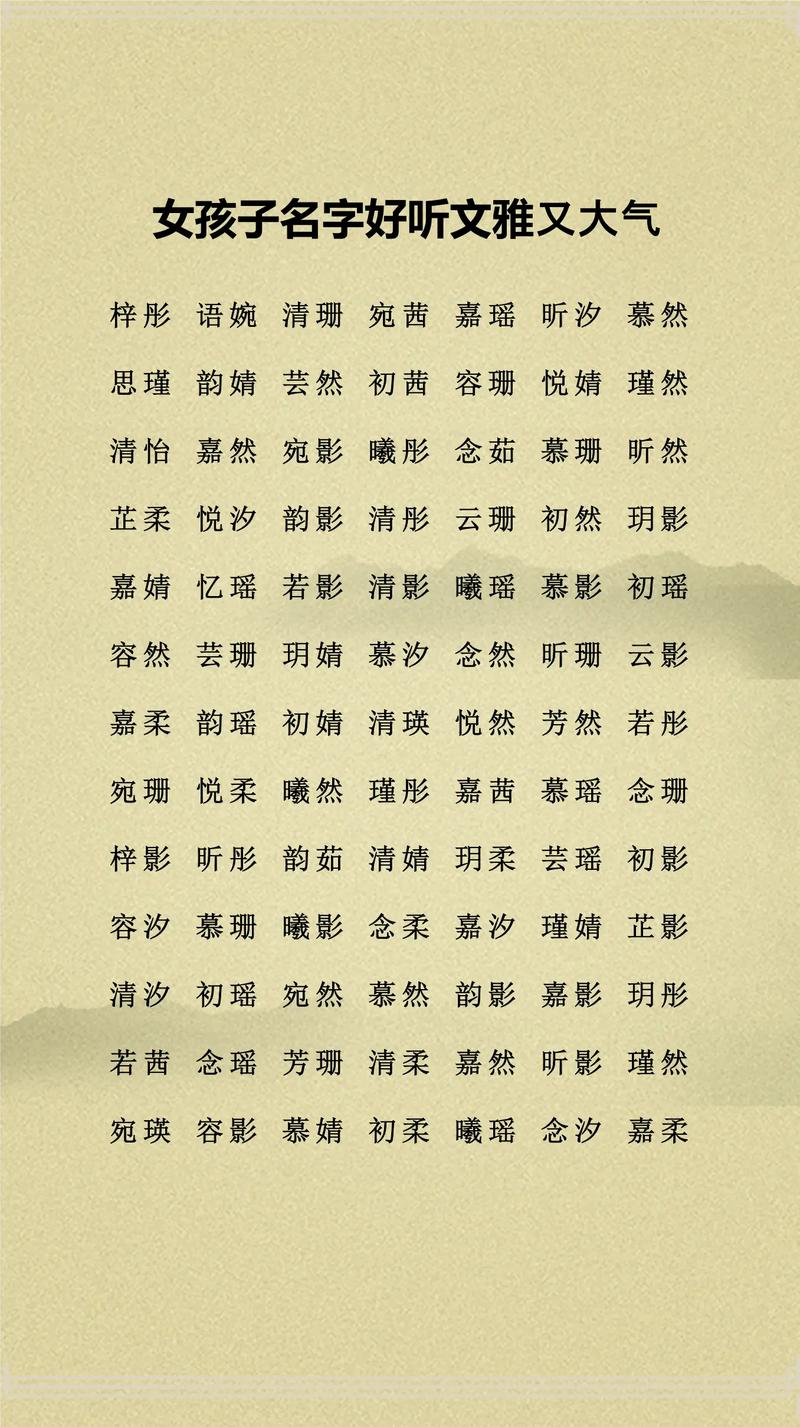 女孩子名字好听文雅又大气
梓彤 语婉 清珊 宛茜 嘉瑶 昕汐 慕然
思瑾 韵婧 芸然 初茜 容珊 悦婧 瑾然
清怡 嘉然 宛影 曦彤 念茹 慕珊 昕然
芷柔 悦汐 韵影 清彤 云珊 初然 玥影
嘉婧 忆瑶 若影 清影 曦瑶 慕影 初瑶
容然 芸珊 玥婧 慕汐 念然 昕珊 云影
嘉柔 韵瑶 初婧 清瑛 悦然 芳然 若彤
宛珊 悦柔 曦然 瑾彤 嘉茜 慕瑶 念珊
梓影 昕彤 韵茹 清婧 玥柔 芸瑶 初影
容汐 慕珊 曦影 念柔 嘉汐 瑾婧 芷影
清汐 初瑶 宛然 慕然 韵影 嘉影 玥彤
若茜 念瑶 芳珊 清柔 嘉然 昕影 瑾然
宛瑛 容影 慕婧 初柔 曦瑶 念汐 嘉柔